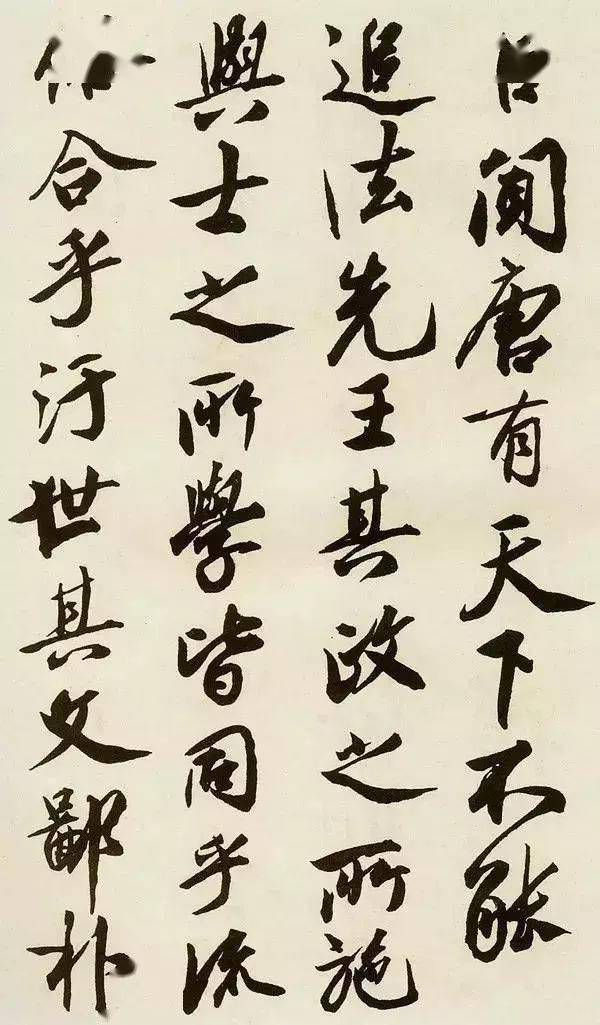 聞唐有天下不能
追法先王其政之所施
與士之所學皆同乎流
俗合乎汙世其文鄙朴